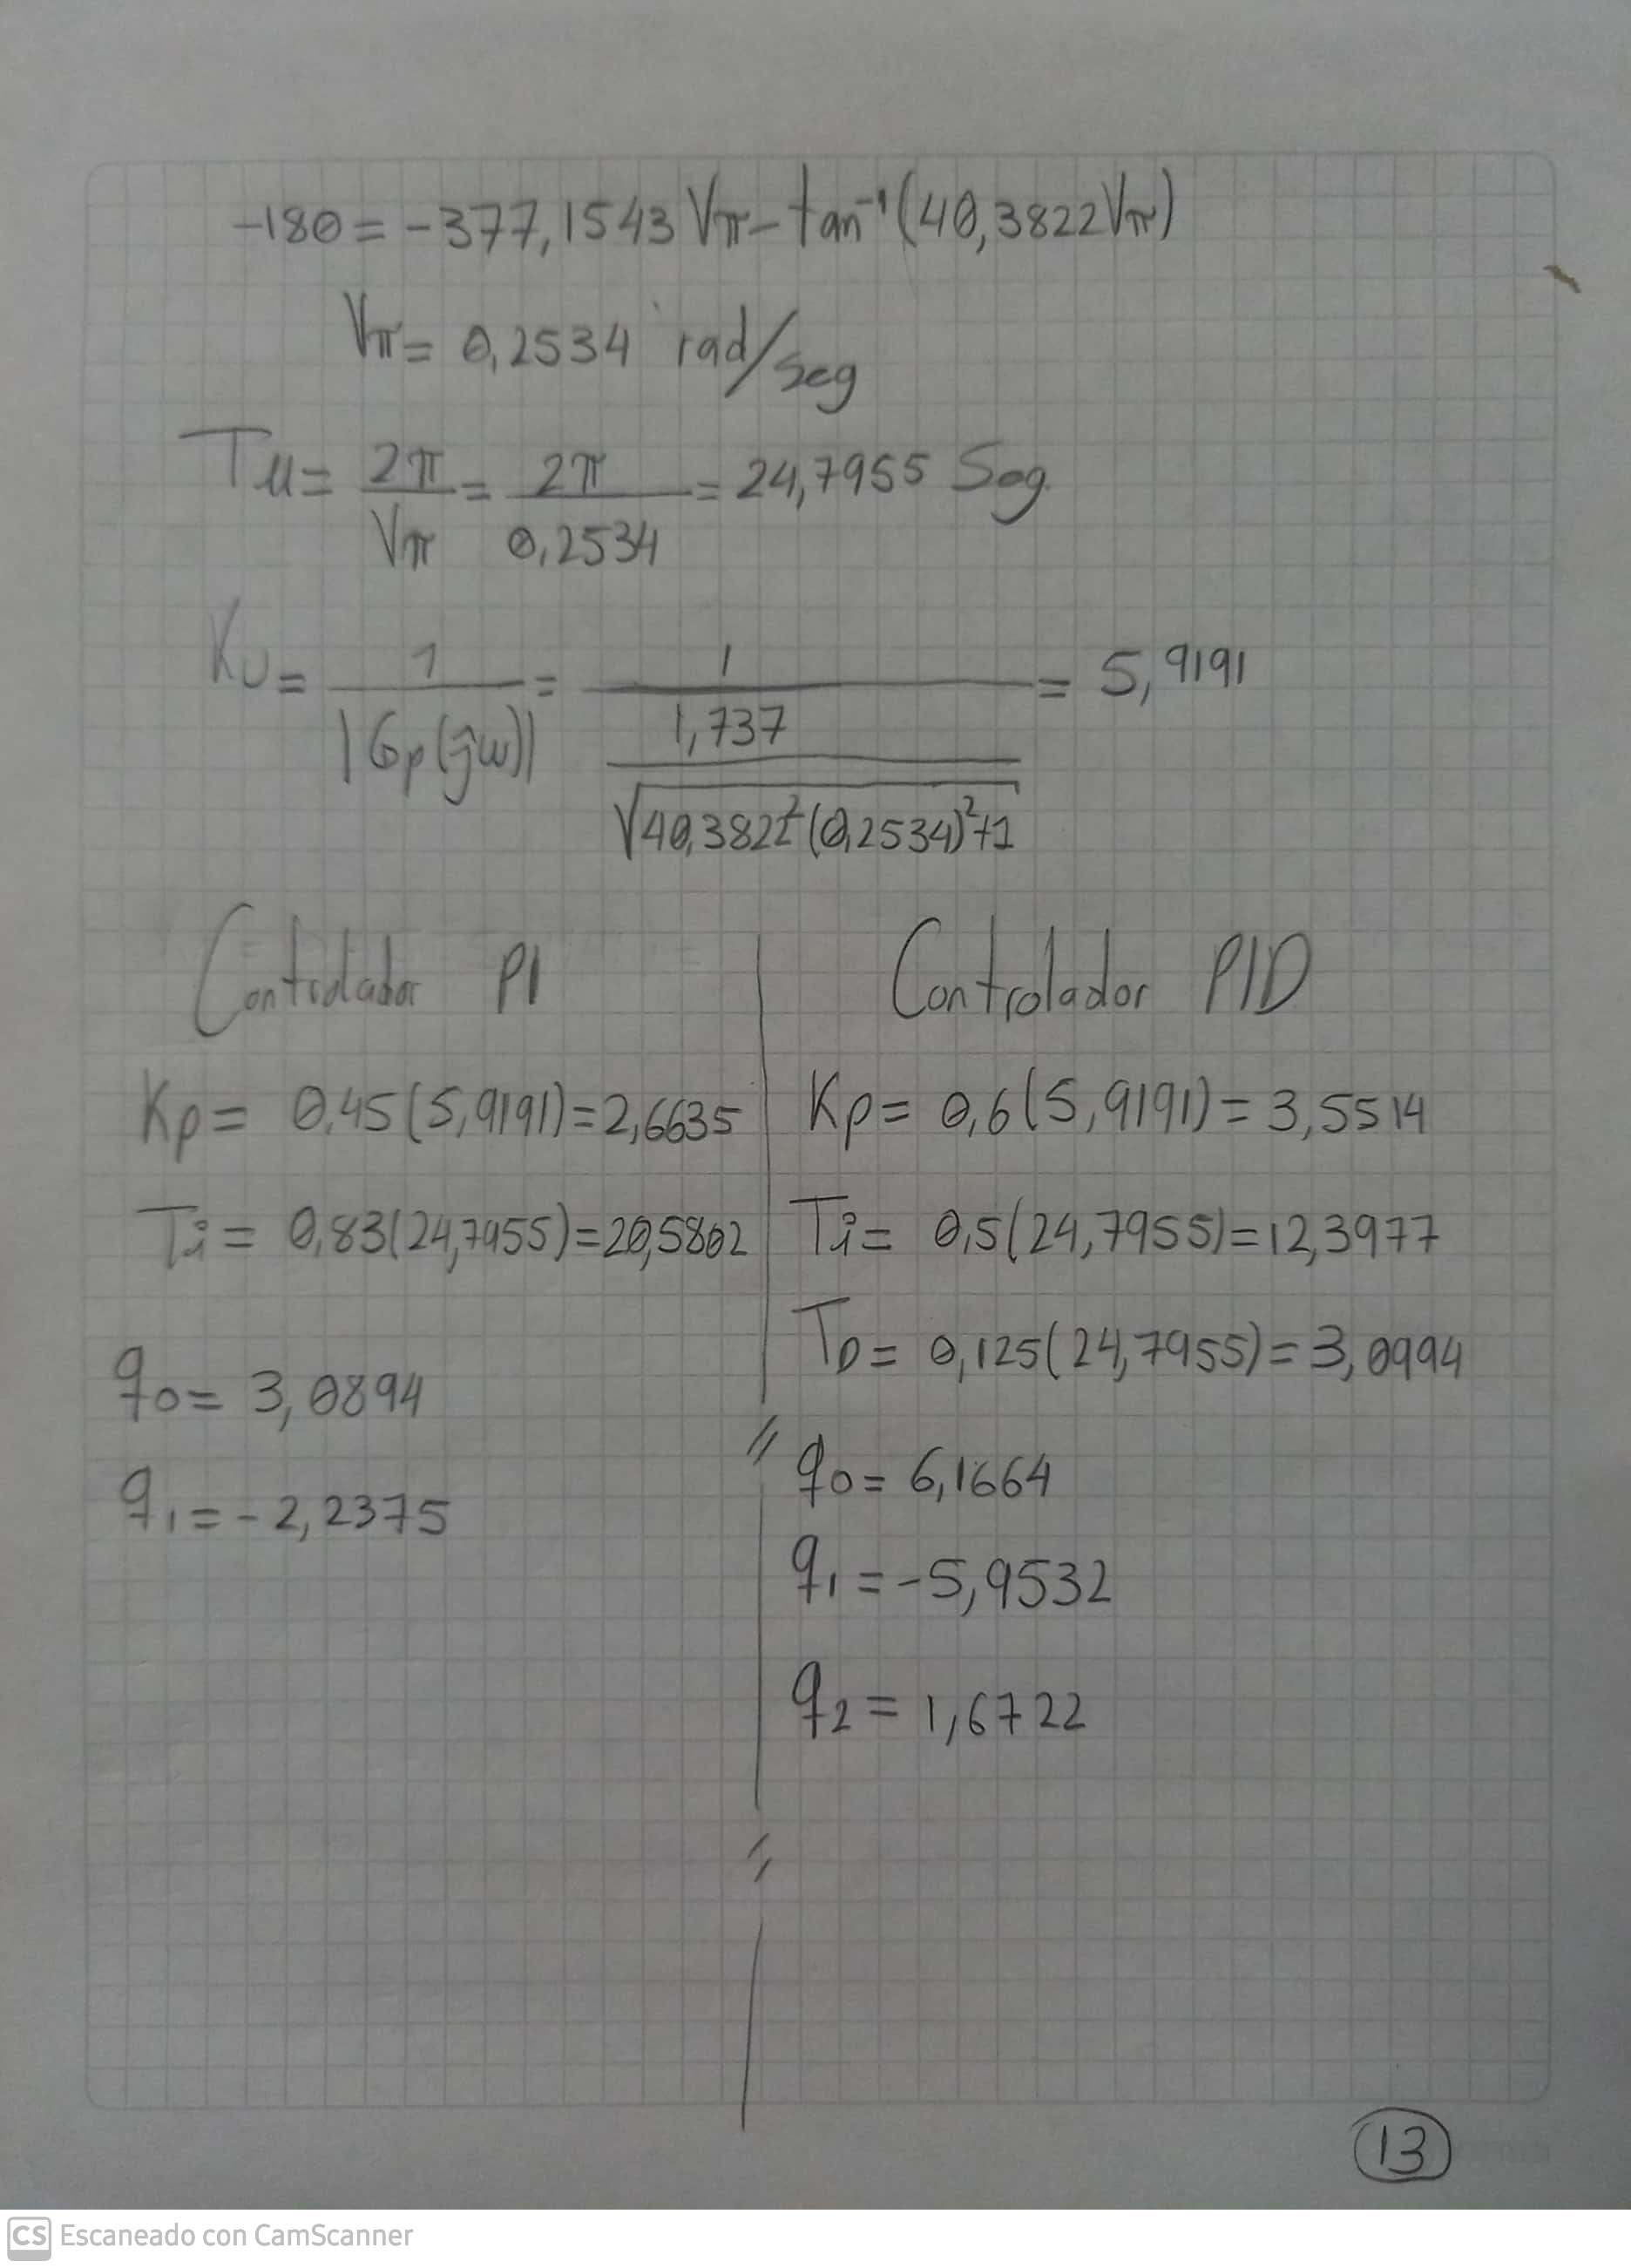 -180 = -377,1543 Vπ - tan⁻¹(40,3822 Vπ)
Vπ = 0,2534 rad/seg
Tu = 2π/Vπ = 2π/0,2534 = 24,7955 Seg.
Ku = 1/|Gp(jω)| = 1/(1,737/√(40,3822²(0,2534)²+1)) = 5,9191
Controlador PI
Kp = 0,45(5,9191) = 2,6635
Ti = 0,83(24,7955) = 20,5802
q0 = 3,0894
q1 = -2,2375
Controlador PID
Kp = 0,6(5,9191) = 3,5514
Ti = 0,5(24,7955) = 12,3977
TD = 0,125(24,7955) = 3,0994
q0 = 6,1664
q1 = -5,9532
q2 = 1,6722
13
CS Escaneado con CamScanner